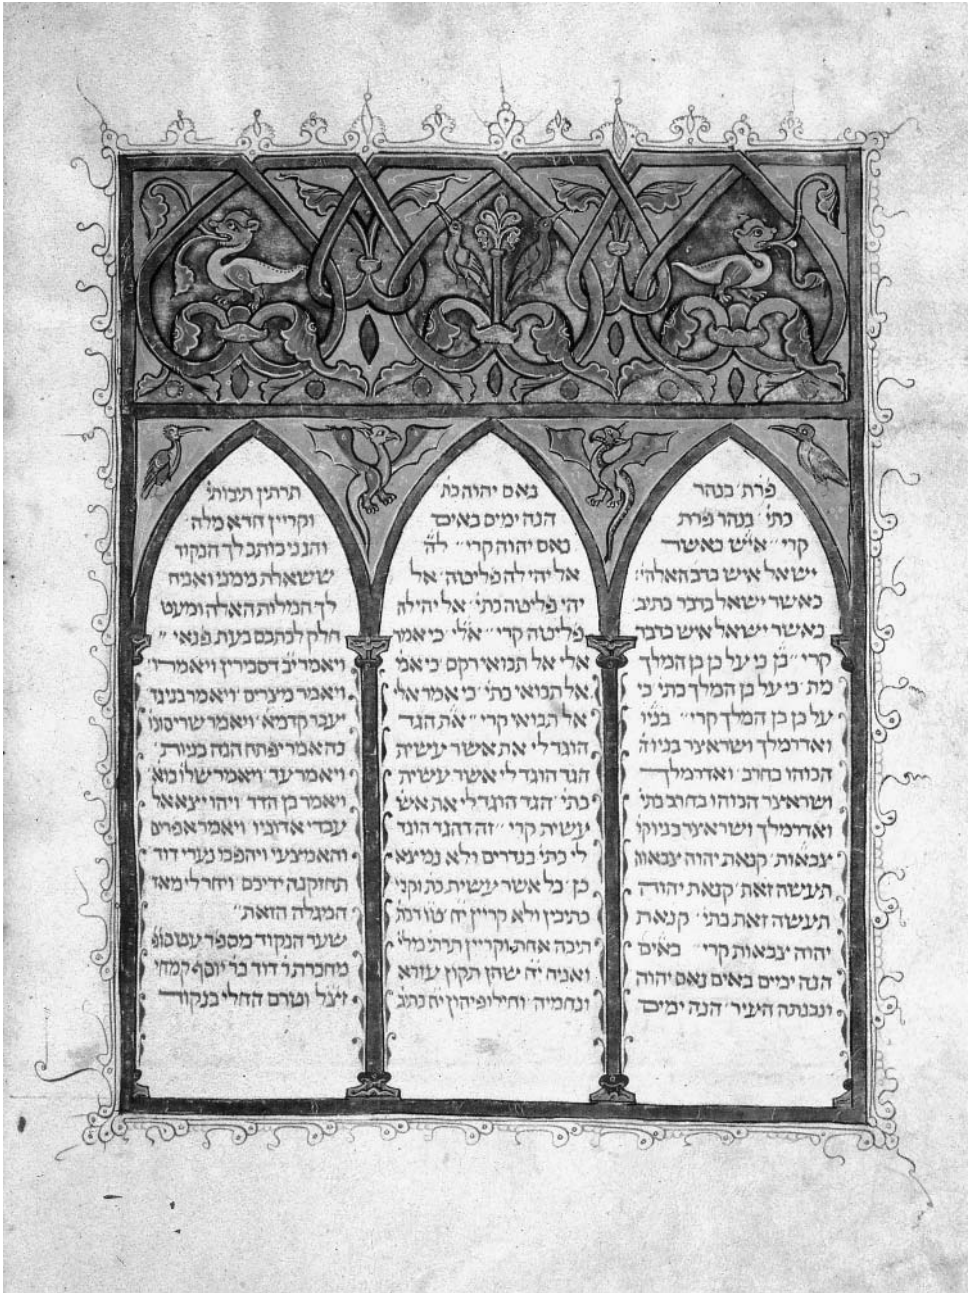 פרת בנהר
כתי׳ בנהר פרת
קרי׳׳ איש כאשר
ישאל איש בדבר האלהי׳
כאשר ישאל בדבר כתיב׳
כאשר ישאל איש בדבר
קרי׳׳ בן כי על בן בן המלך
מת׳ כי על בן המלך כתי׳ כי
על בן בן המלך קרי׳׳ בניו
ואדרמלך ושראצר בניו ה
הכוהו בחרב׳ ואדרמלך
ושראיצר הכוהו בחרב כתי׳
ואדרמלך ושראצר בניו קרי׳
צבאות׳ קנאת יהוה צבאות
תעשה זאת׳ קנאת יהוה
תעשה זאת כתי׳ קנאת
יהוה צבאות קרי׳׳ באים
הנה ימים באים נאם יהוה
ונבנתה העיר׳ הנה ימים
נאם יהוה כת׳
הנה ימים באים
נאם יהוה קרי׳׳ לה
אל יהי לה פליטה׳ אל
יהי פליטה כתי׳ אל יהי לה
פליטה קרי׳׳ אלי׳ כי אמר
אלי אל תבואי רקם׳ כי אמ׳
אל תבואי כתי׳ כי אמר אלי
אל תבואי קרי׳׳ את הגד
הוגד לי את אשר עשית
הגד הוגד לי אשר עשית
כתי׳ הגד הוגד לי את אש׳
עשית קרי׳׳ זה דהגד הוגד
לי כתי׳ בנדרים ולא נמצא
כן׳ כל אשר עשית
כתיבין ולא קריין
תיבה אחת׳ וקריין תרתי מלי׳
ואניה יה׳ ישהן תקון עזרא
ונחמיה׳ וחילופיהון יה׳ כתיב
תרתין תיבותי׳
וקריין חדא מלה׳
והנני כותב לך הנקוד
ששאלת ממני ואניח
לך המלות האלה ומעט
חלק לבתכם בעת פנאי׳׳
ויאמר י׳׳ב דסבירין ויאמרו׳
ויאמר מצרים׳ ויאמר בנינד׳
יעבר קדמא׳ ויאמר
כה אמר יפתח הנה בניות׳
ויאמר עד׳ ויאמר שלו בוא
ויאמר בן הדד׳ ויהי יצאאל
עבדי אדוניו׳ ויאמר אפרים
והאמיצעי ויהפכו נערי דוד
תחזקנה ידיכם׳ ויחר לי מאד
המגלה הזאת׳׳
שער הנקוד מספר עט סופ׳
מחברת ר׳ דוד בר׳ יוסף קמחי
ז׳צ׳ל׳ וטרם החלי בנקוד׳